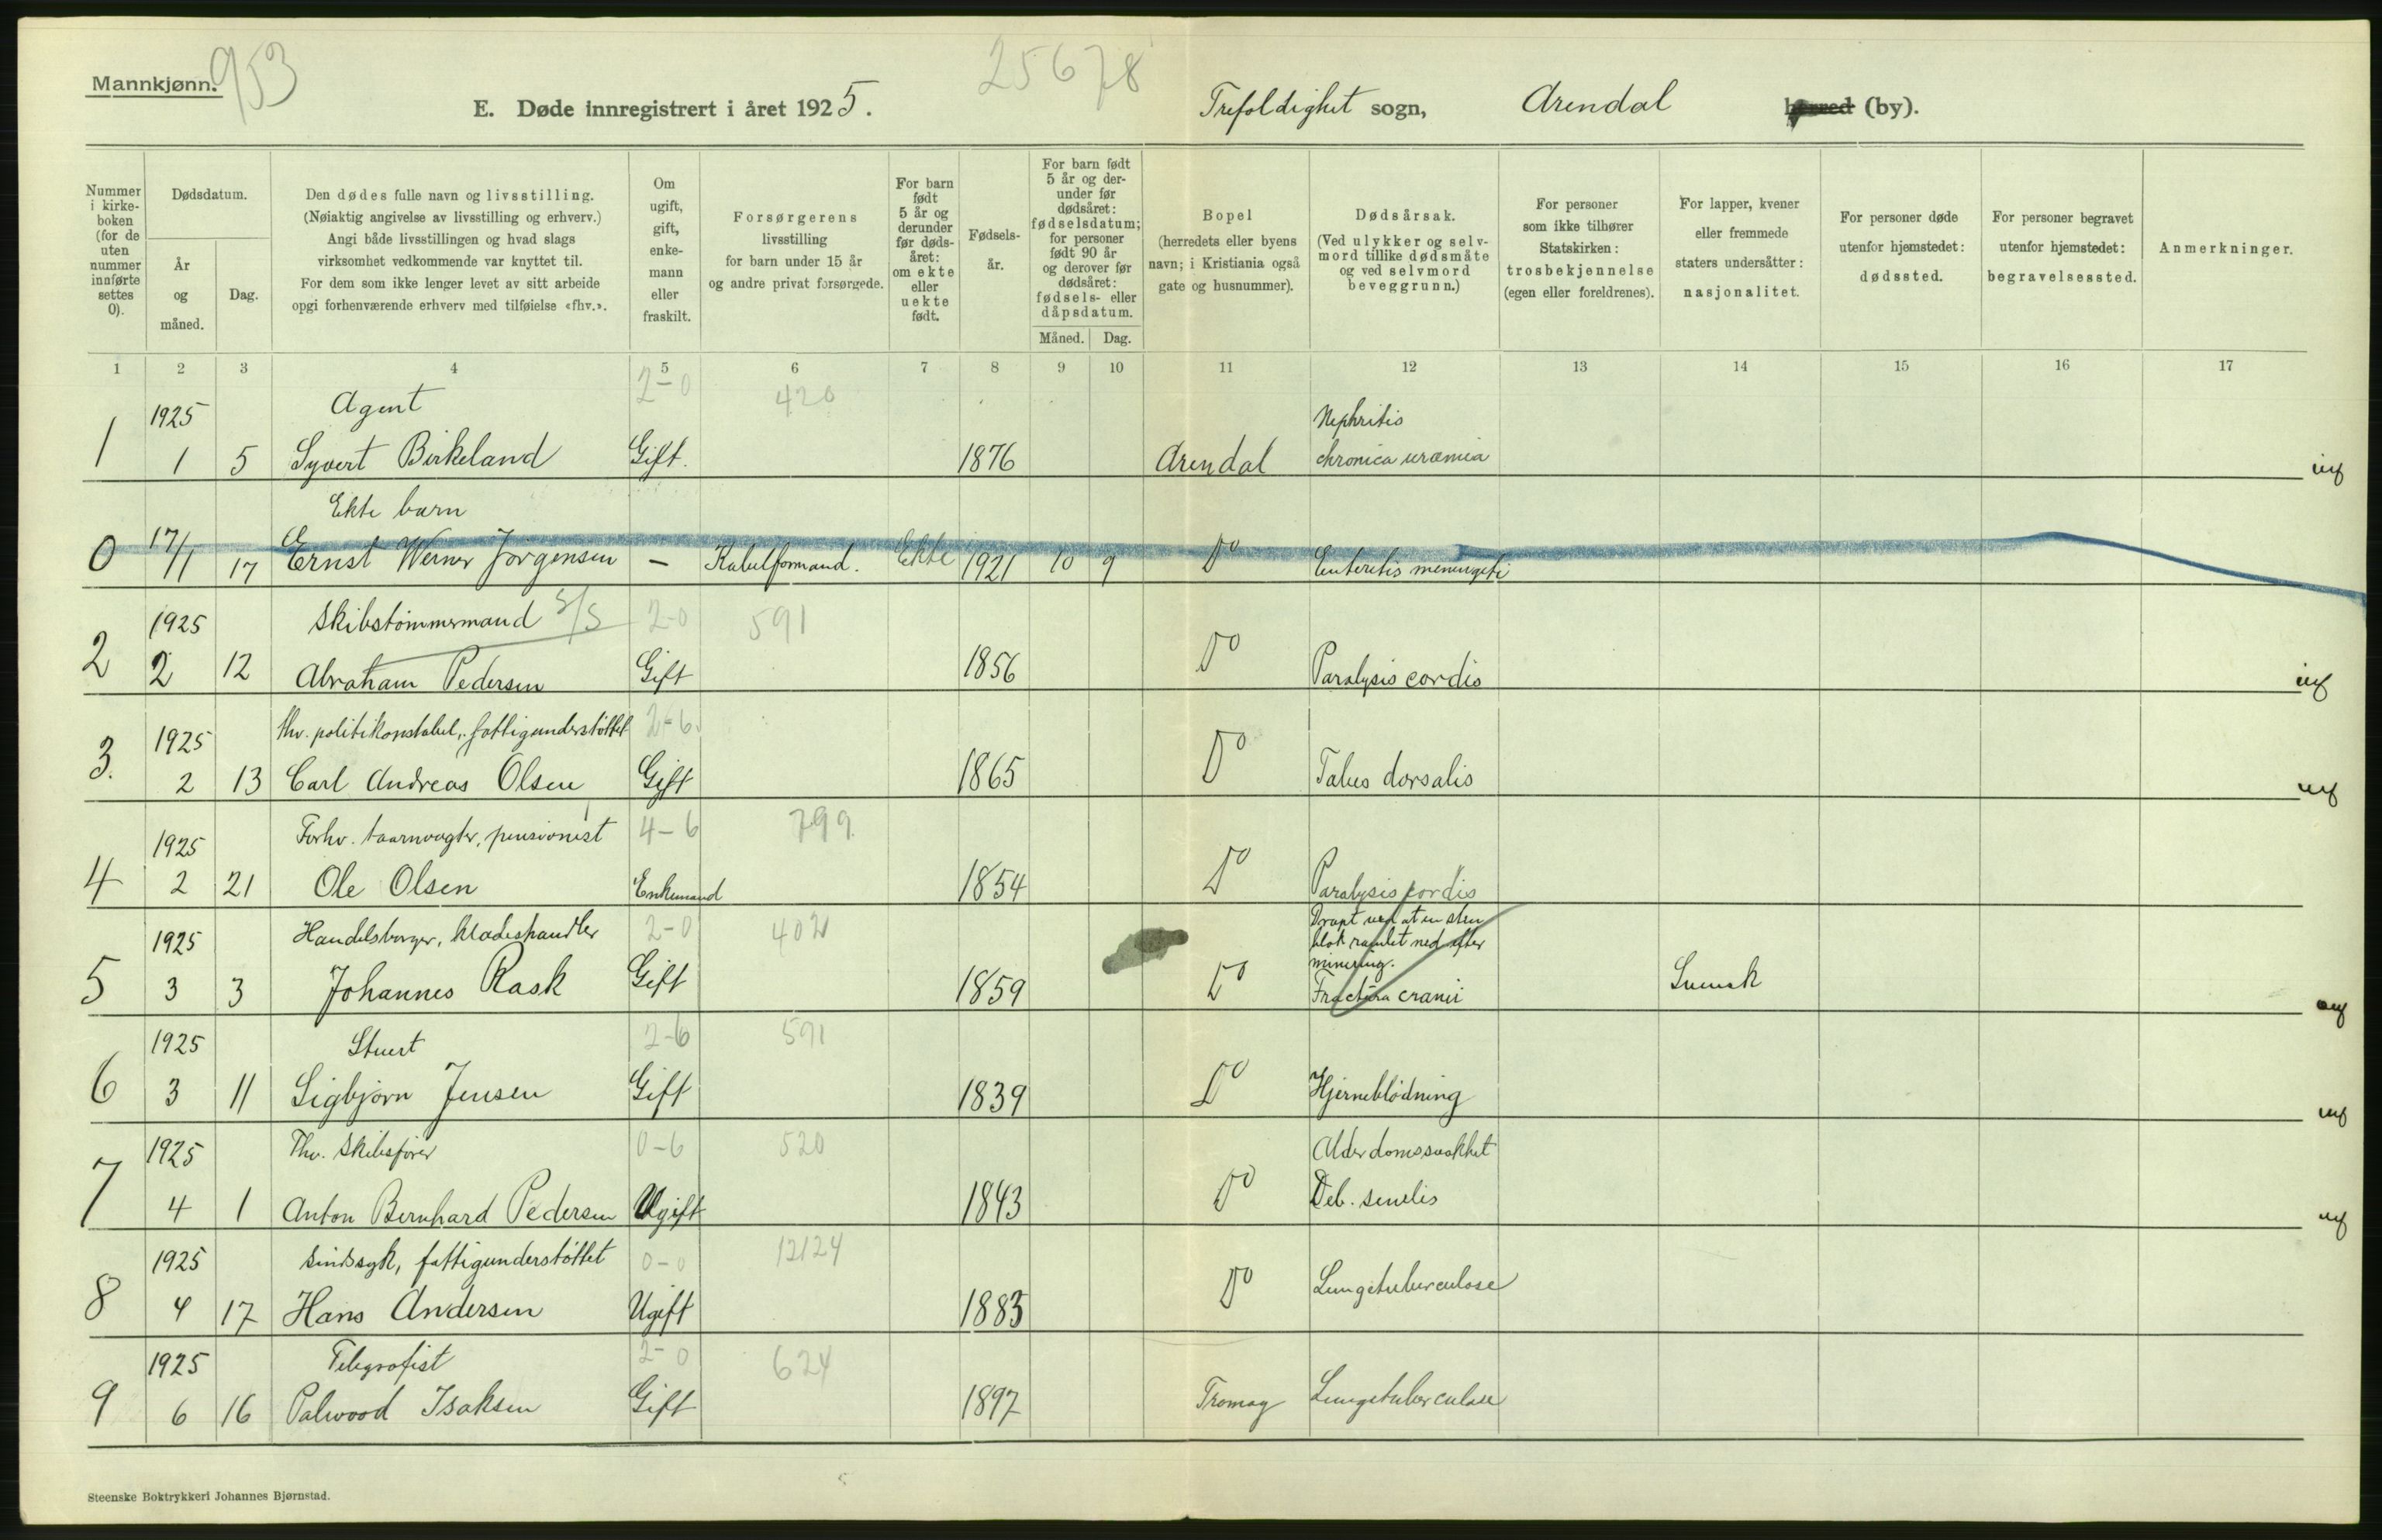 Mannkjønn.
953
25678
E. Døde innregistrert i året 1925.
Trefoldighet sogn, Arendal herred (by).
Nummer i kirke-boken (for de uten nummer innførte settes 0).
Dødsdatum.
År og måned.
Dag.
Den dødes fulle navn og livsstilling.
(Nøiaktig angivelse av livsstilling og erhverv.)
Angi både livsstillingen og hvad slags
virksomhet vedkommende var knyttet til.
For dem som ikke lenger levet av sitt arbeide
opgi forhenværende erhverv med tilføielse «fhv.».
Om ugift, gift, enke-mann eller fraskilt.
Forsørgerens
livsstilling
for barn under 15 år
og andre privat forsørgede.
For barn født 5 år og derunder før døds-året: om ekte eller uekte født.
Fødsels-år.
For barn født 5 år og der-under før dødsåret: fødselsdatum; for personer født 90 år og derover før dødsåret: fødsels- eller dåpsdatum.
Måned.
Dag.
Bopel
(herredets eller byens
navn; i Kristiania også
gate og husnummer).
Dødsårsak.
(Ved ulykker og selv-
mord tillike dødsmåte
og ved selvmord
beveggrunn.)
For personer
som ikke tilhører
Statskirken:
trosbekjennelse
(egen eller foreldrenes).
For lapper, kvener
eller fremmede
staters undersåtter:
nasjonalitet.
For personer døde
utenfor hjemstedet:
dødssted.
For personer begravet
utenfor hjemstedet:
begravelsessted.
Anmerkninger.
1 2 3 4 5 6 7 8 9 10 11 12 13 14 15 16 17
1925 Agent 2-0 420 Nephritis
1 1 5 Syvert Birkeland Gift. 1876 Arendal chronica uræmia
Ekte barn
0 17/1 17 Ernst Werner Jørgensen — Kabelformand. Ekte 1921 10 9 Do Enteritis meningiti
1925 Skibstømmermand S/S 2-0 591
2 2 12 Abraham Pedersen Gift 1856 Do Paralysis cordis
1925 fhv. politikonstabel, fattigunderstøttet 2-6.
3. 2 13 Carl Andreas Olsen Gift 1865 Do Tabes dorsalis
1925 Forhv. taarnvagter, pensionist 4-6 799
4 2 21 Ole Olsen Enkemand 1854 Do Paralysis cordis
1925 Handelsborger, klædeshandler 2-0 402 Dræpt ved at en sten
blok ramlet ned efter
minering.
5 3 3 Johannes Rask Gift 1859 Do Fractura cranii Svensk
1925 Stuert 2-6 591
6 3 11 Sigbjørn Jensen Gift 1839 Do Hjerneblødning
1925 Fhv. Skibsfører 0-6 520 Alderdomssvakhet
7 4 1 Anton Bernhard Pedersen Ugift 1843 Do Deb. senilis
1925 Sindssyk, fattigunderstøttet 0-0 12124
8 4 17 Hans Andersen Ugift 1883 Do Lungetuberculose
1925 Telegrafist 2-0 624
9 6 16 Palwood Isaksen Gift 1897 Tromøy Lungetuberculose
Steenske Boktrykkeri Johannes Bjørnstad.